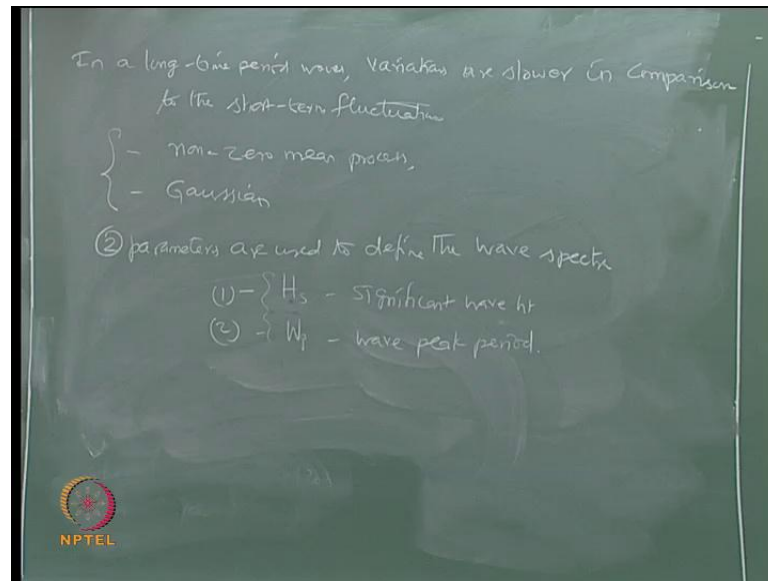 In a long-time period waves, variations are slower in comparison
to the short-term fluctuation
- non-zero mean process,
- Gaussian
② parameters are used to define the wave spectra
(1) - { Hs - significant wave ht
(2) - { Wp - wave peak period.
NPTEL